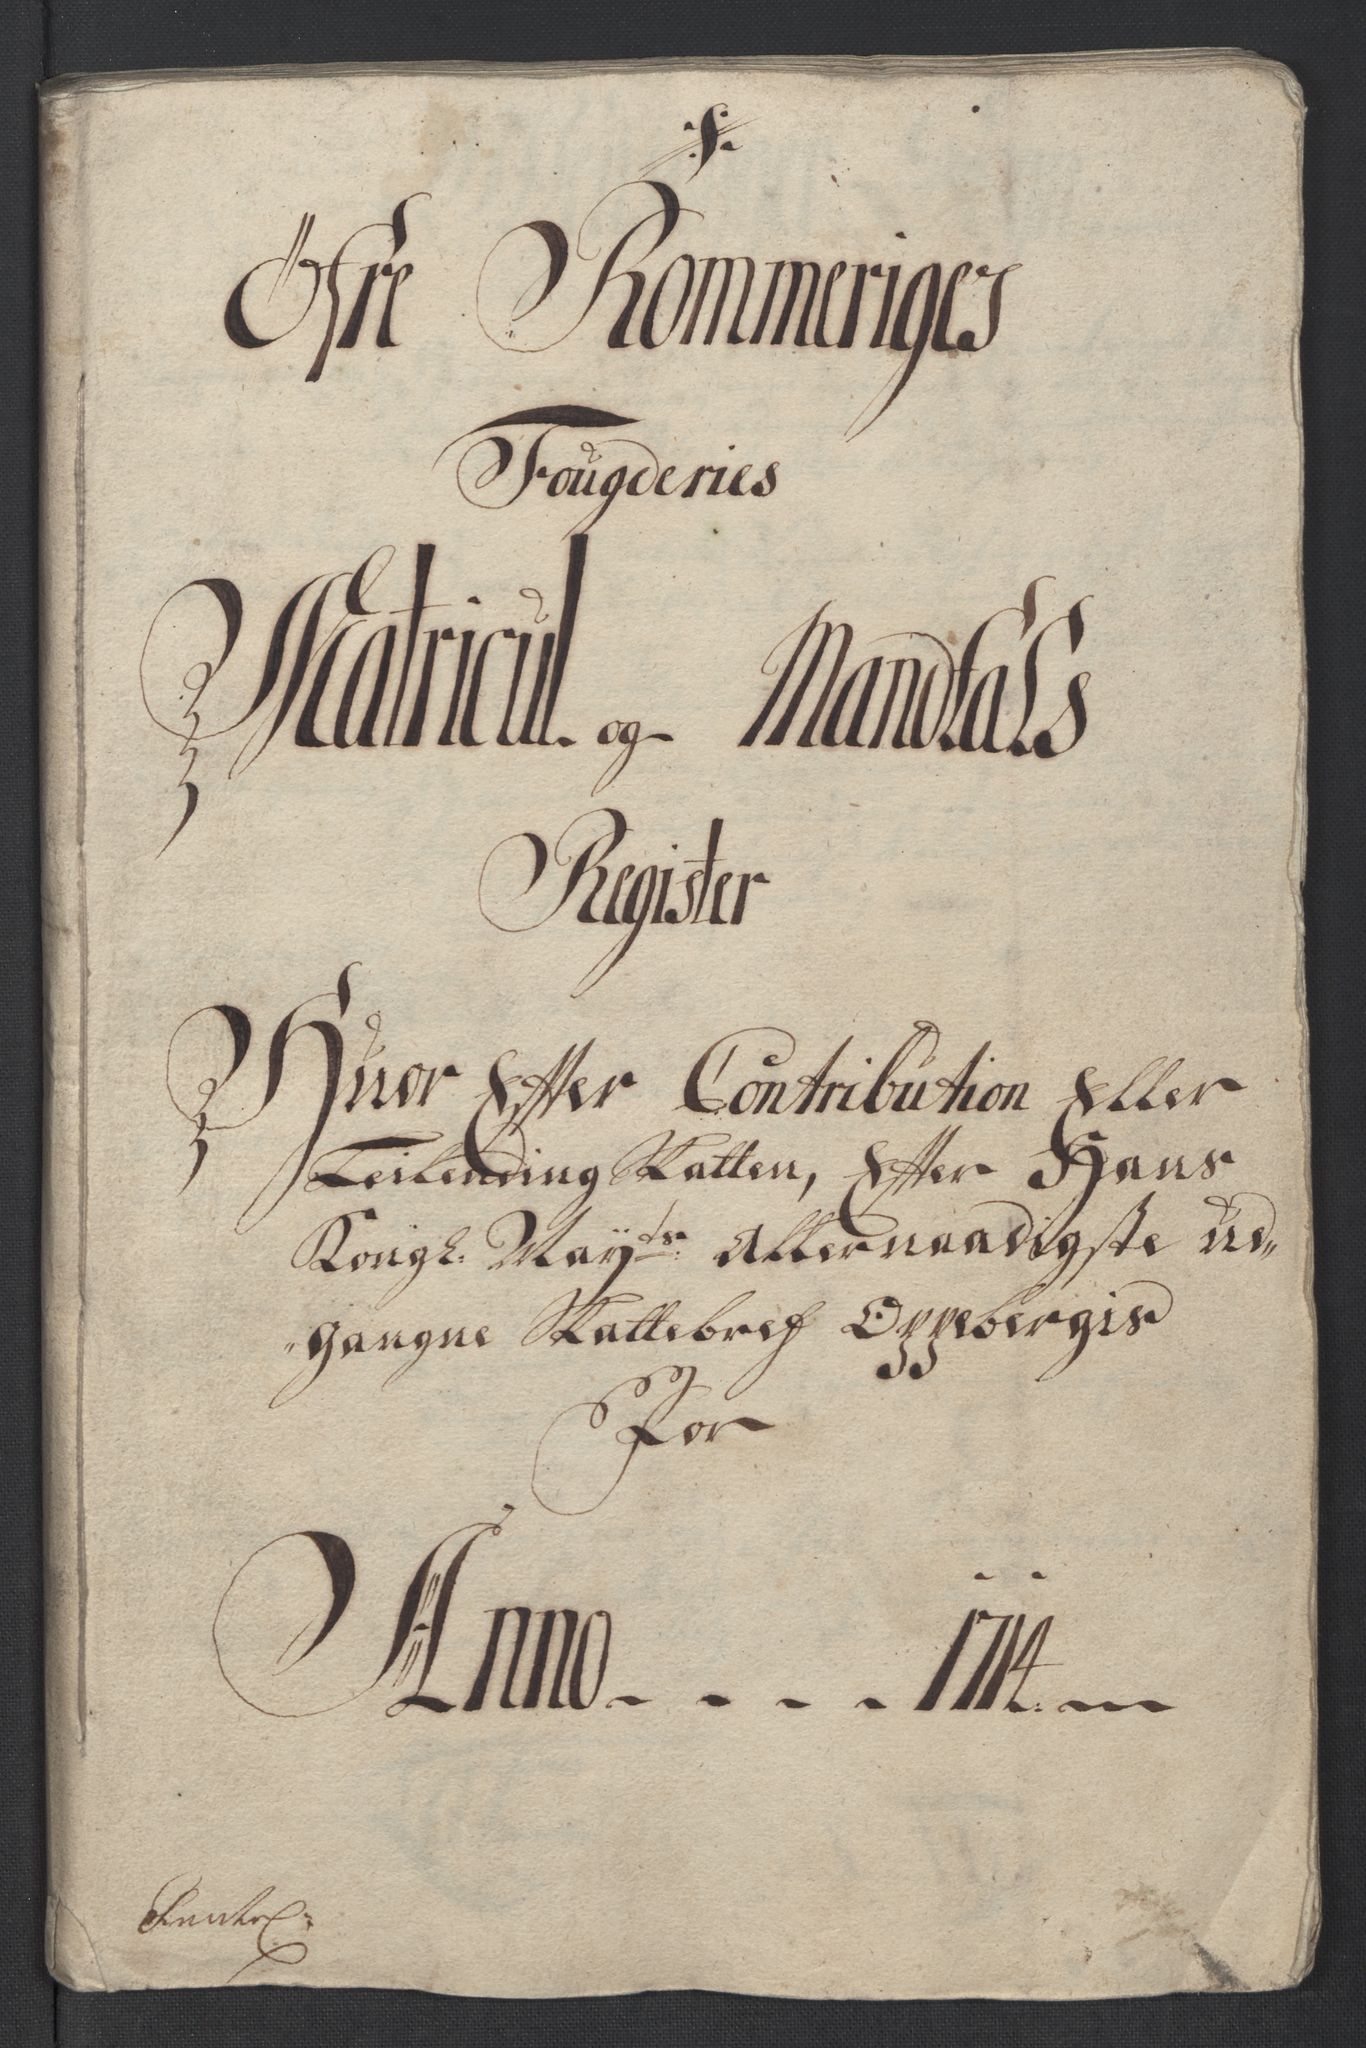 Öfre Rommeriges
Fougderies
Matricul og Mandtals
Register
Huor Effter Contribution Eller
Leilending Skatten, Effter Hans
Kongl: Mayts: Allernaadigste ud„
„gangne Skattebref Oppebergis
For
Anno - - - - 1714. -